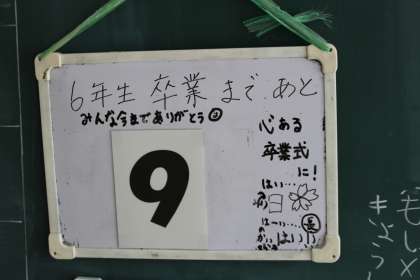 6年生 卒業まで あと
みんな今までありがとう
9
日
心ある
卒業式
に!
はい…
はーい…
長
はい!!